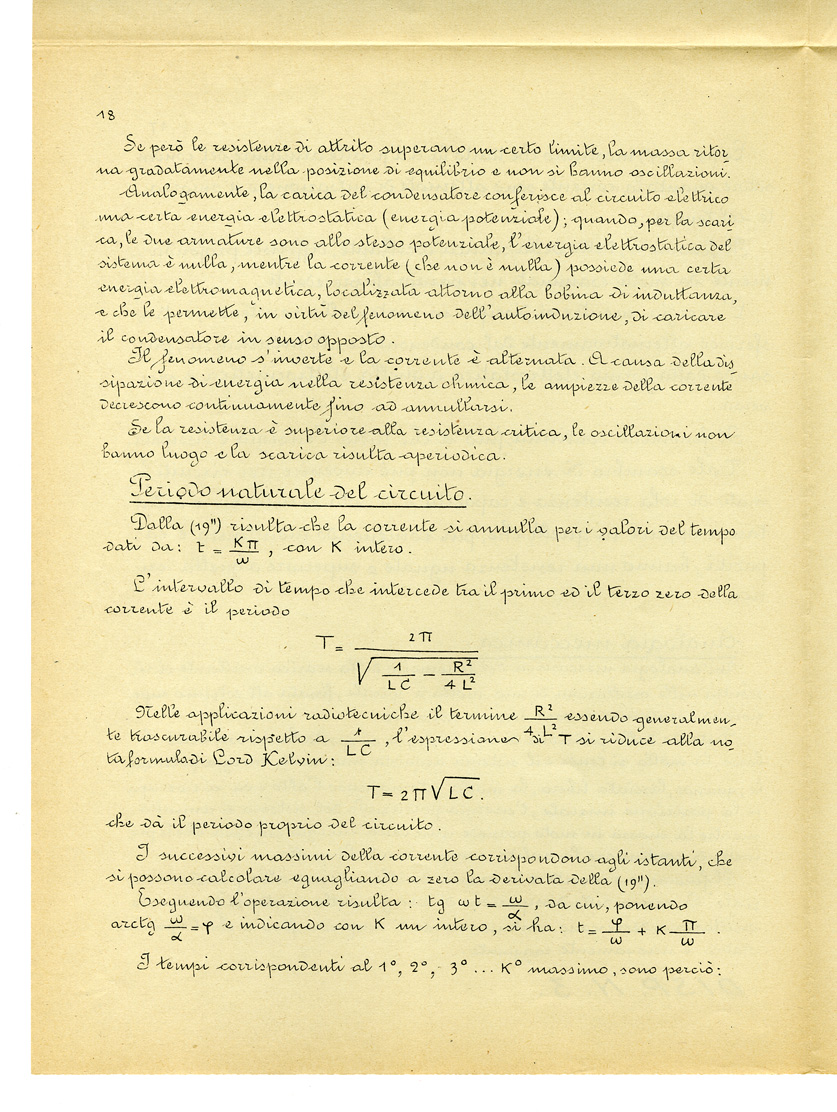 18
Se però le resistenze di attrito superano un certo limite, la massa ritor_
na gradatamente nella posizione di equilibrio e non si hanno oscillazioni.
Analogamente, la carica del condensatore conferisce al circuito elettrico
una certa energia elettrostatica (energia potenziale); quando, per la scari_
ca, le due armature sono allo stesso potenziale, l'energia elettrostatica del
sistema è nulla, mentre la corrente (che non è nulla) possiede una certa
energia elettromagnetica, localizzata attorno alla bobina di induttanza,
e che le permette, in virtù del fenomeno dell'autoinduzione, di caricare
il condensatore in senso opposto.
Il fenomeno s'inverte e la corrente è alternata. A causa della dis_
sipazione di energia nella resistenza ohmica, le ampiezze della corrente
decrescono continuamente fino ad annullarsi.
Se la resistenza è superiore alla resistenza critica, le oscillazioni non
hanno luogo e la scarica risulta aperiodica.
Periodo naturale del circuito.
Dalla (19") risulta che la corrente si annulla per i valori del tempo
dati da: t = Kπ/ω, con K intero.
L'intervallo di tempo che intercede tra il primo ed il terzo zero della
corrente è il periodo
T = 2π / √(1/LC − R²/4L²)
Nelle applicazioni radiotecniche il termine R²/4L² essendo generalmen_
te trascurabile rispetto a 1/LC, l'espressione di T si riduce alla no_
ta formula di Lord Kelvin:
T = 2π√LC.
che dà il periodo proprio del circuito.
I successivi massimi della corrente corrispondono agli istanti, che
si possono calcolare eguagliando a zero la derivata della (19").
Eseguendo l'operazione risulta: tg ωt = ω/α, da cui, ponendo
arctg ω/α = φ e indicando con K un intero, si ha: t = φ/ω + K π/ω.
I tempi corrispondenti al 1°, 2°, 3° ... K° massimo, sono perciò: